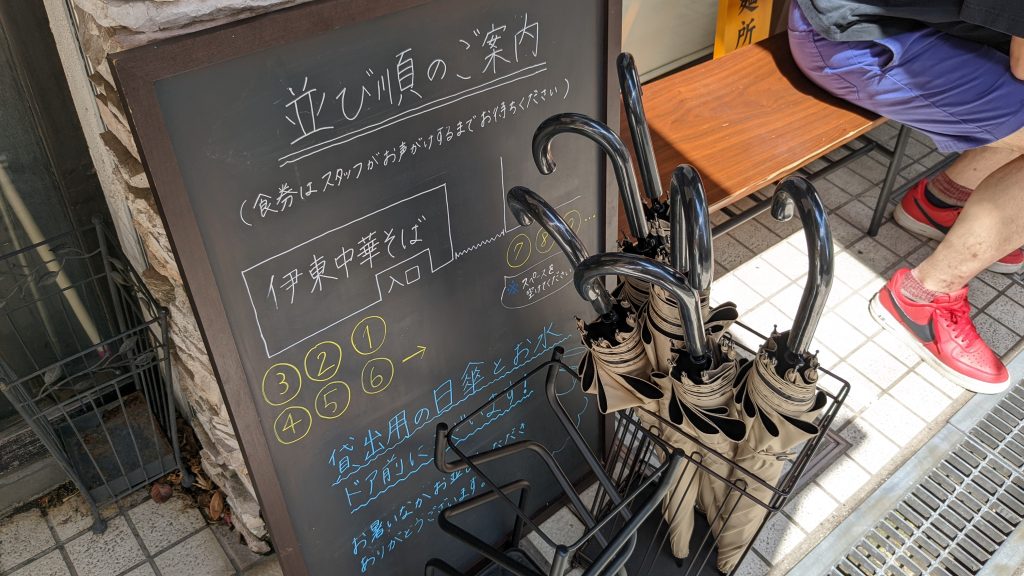 並び順のご案内
(食券はスタッフがお声がけするまでお待ちください)
伊東中華そば
入口
③ ② ①
④ ⑤ ⑥ →
⑦ ⑧ ⑨ …
スペースを
空けてください
貸出用の日傘とお水
ドア前に
お暑いなかお並び
ありがとうございます。
所